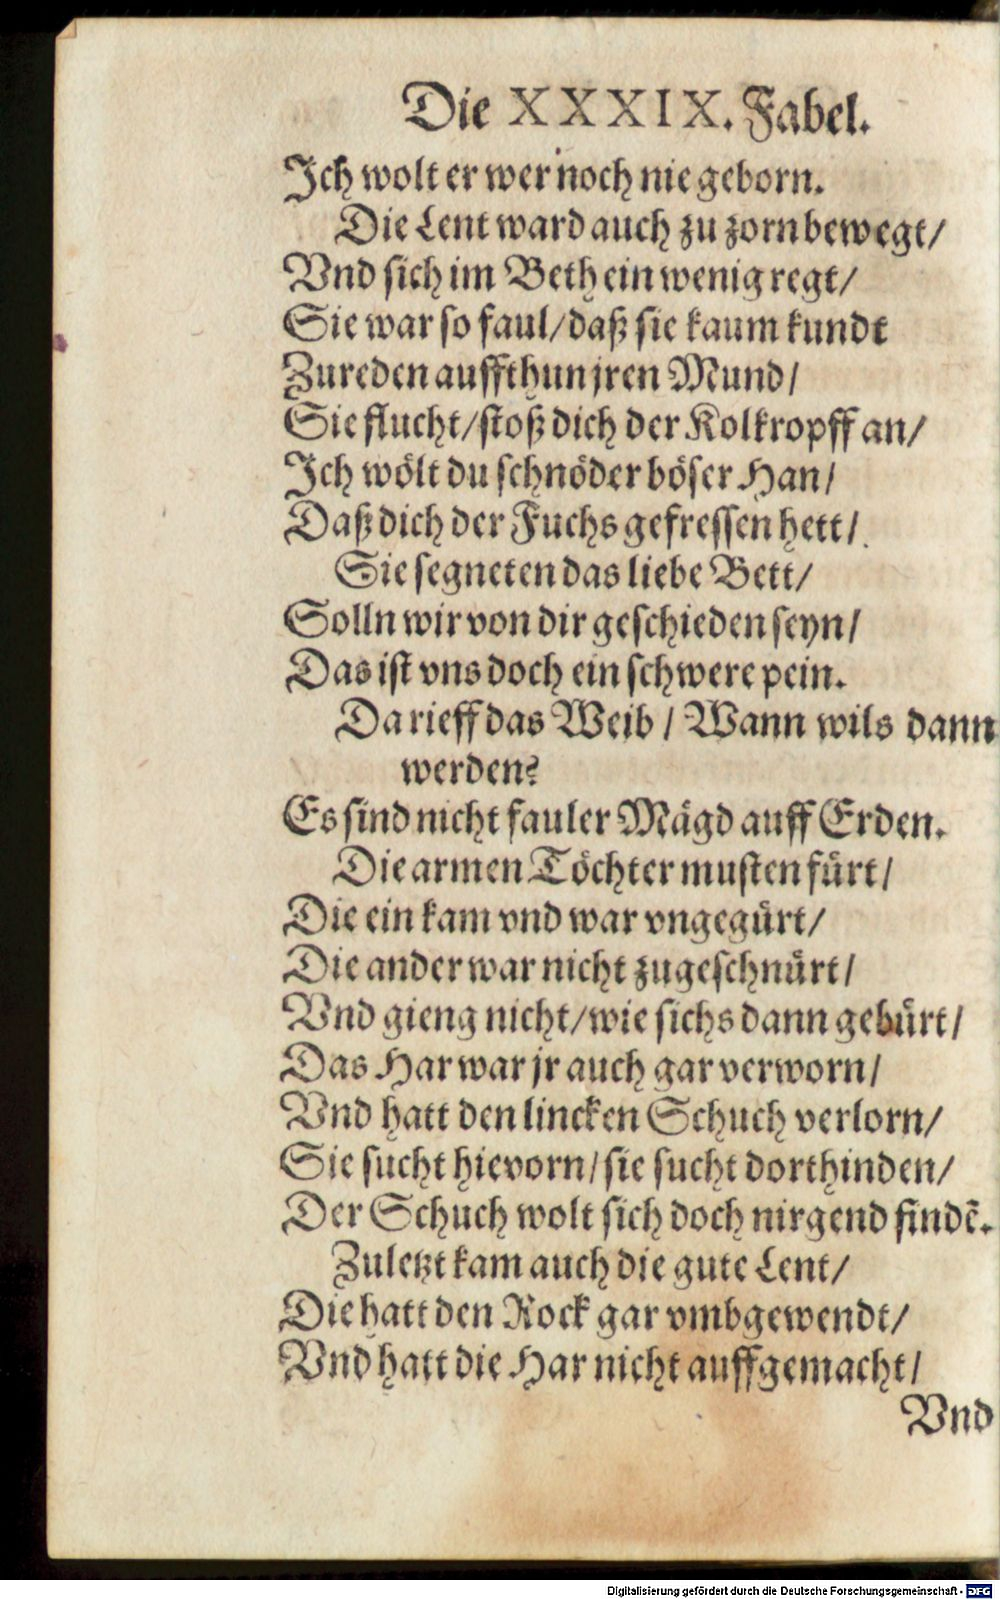 Die XXXIX. Fabel.
Jch wolt er wer noch nie geborn.
Die Lent ward auch zu zorn bewegt/
Vnd sich im Beth ein wenig regt/
Sie war so faul/daß sie kaum kundt
Zureden auffthun jren Mund/
Sie flucht/stoß dich der Kolkropff an/
Jch wölt du schnöder böser Han/
Daß dich der Fuchs gefressen hett/
Sie segneten das liebe Bett/
Solln wir von dir geschieden seyn/
Das ist vns doch ein schwere pein.
Da rieff das Weib / Wann wils dann
werden?
Es sind nicht fauler Mägd auff Erden.
Die armen Töchter musten fürt/
Die ein kam vnd war vngegürt/
Die ander war nicht zugeschnürt/
Vnd gieng nicht/wie sichs dann gebürt/
Das Har war jr auch gar verworn/
Vnd hatt den lincken Schuch verlorn/
Sie sucht hievorn/sie sucht dorthinden/
Der Schuch wolt sich doch nirgend findē.
Zuletzt kam auch die gute Lent/
Die hatt den Rock gar vmbgewendt/
Vnd hatt die Har nicht auffgemacht/
Vnd
Digitalisierung gefördert durch die Deutsche Forschungsgemeinschaft - DFG